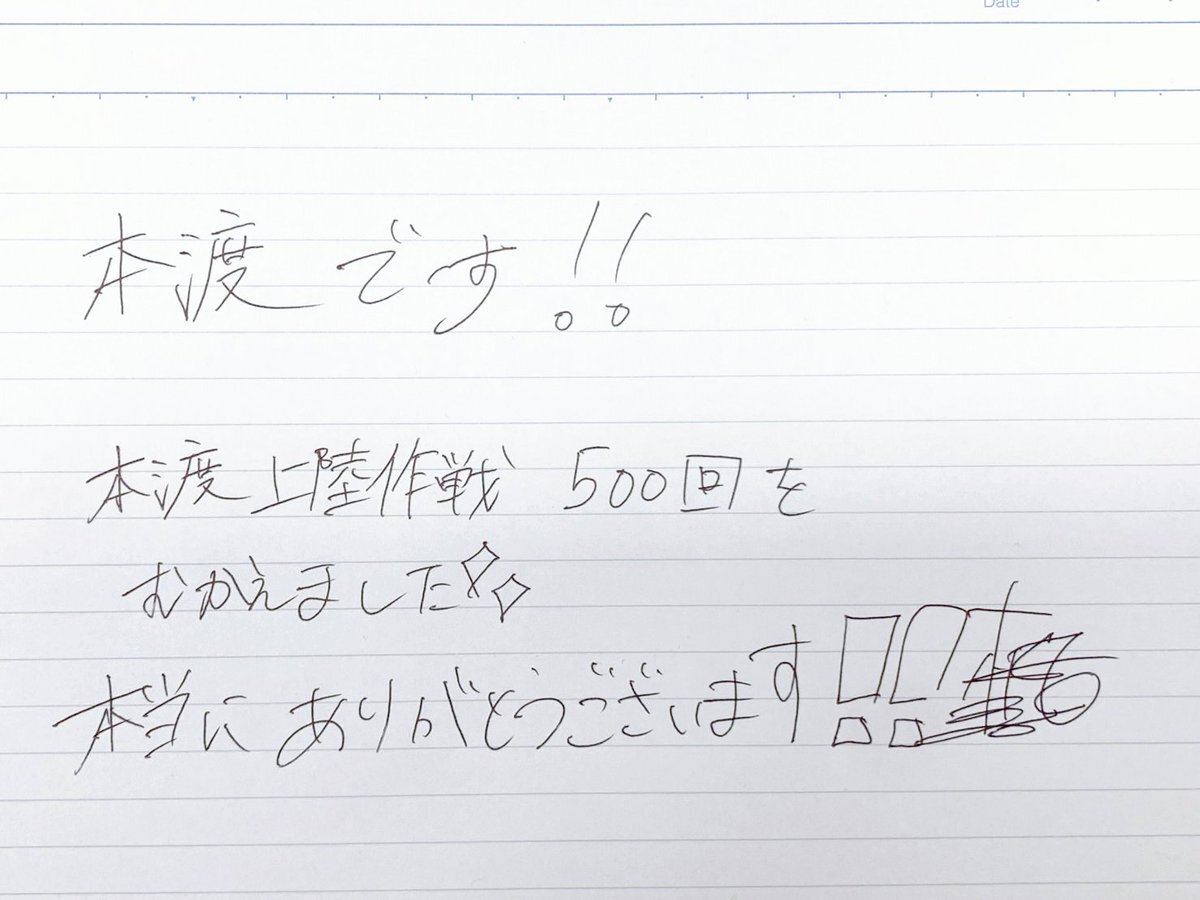 Date
本渡です!!
本渡上陸作戦 500回を
むかえました
本当にありがとうございます!!